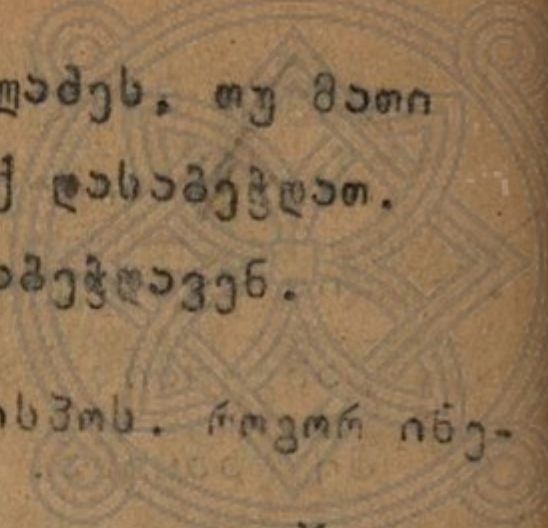 ლამეს. თუ მათი
ქ დასაბეჭდათ.
აბეჭდავენ.
ისპოს. როგორ ინე-